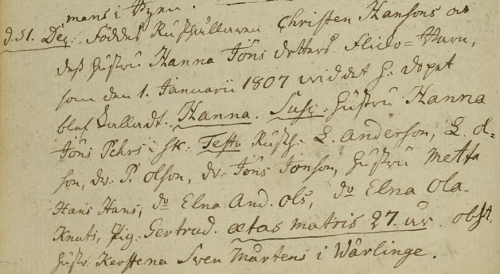 mans i Byen.
d. 31. Dec. Föddes Rusthållaren Christen Hansons oc
dess hustru Hanna Jöns dotters Flicko-Barn,
som den 1. Januarii 1807 wid det h. dopet
blef kalladt Hanna. Susc. Hustru Hanna
Jöns Pehrs i St. Test. Rusth. L. Anderson, L. Ol-
son, dr. P. Olson, dr. Jöns Jonson, hustru Metta
Hans Hans, do Elna And. Ols, do Elna Ola
Knuts, Pig. Gertrud. ætas matris 27. år. obst.
hustr. Kerstena Swen Mårtens i Wärlinge.